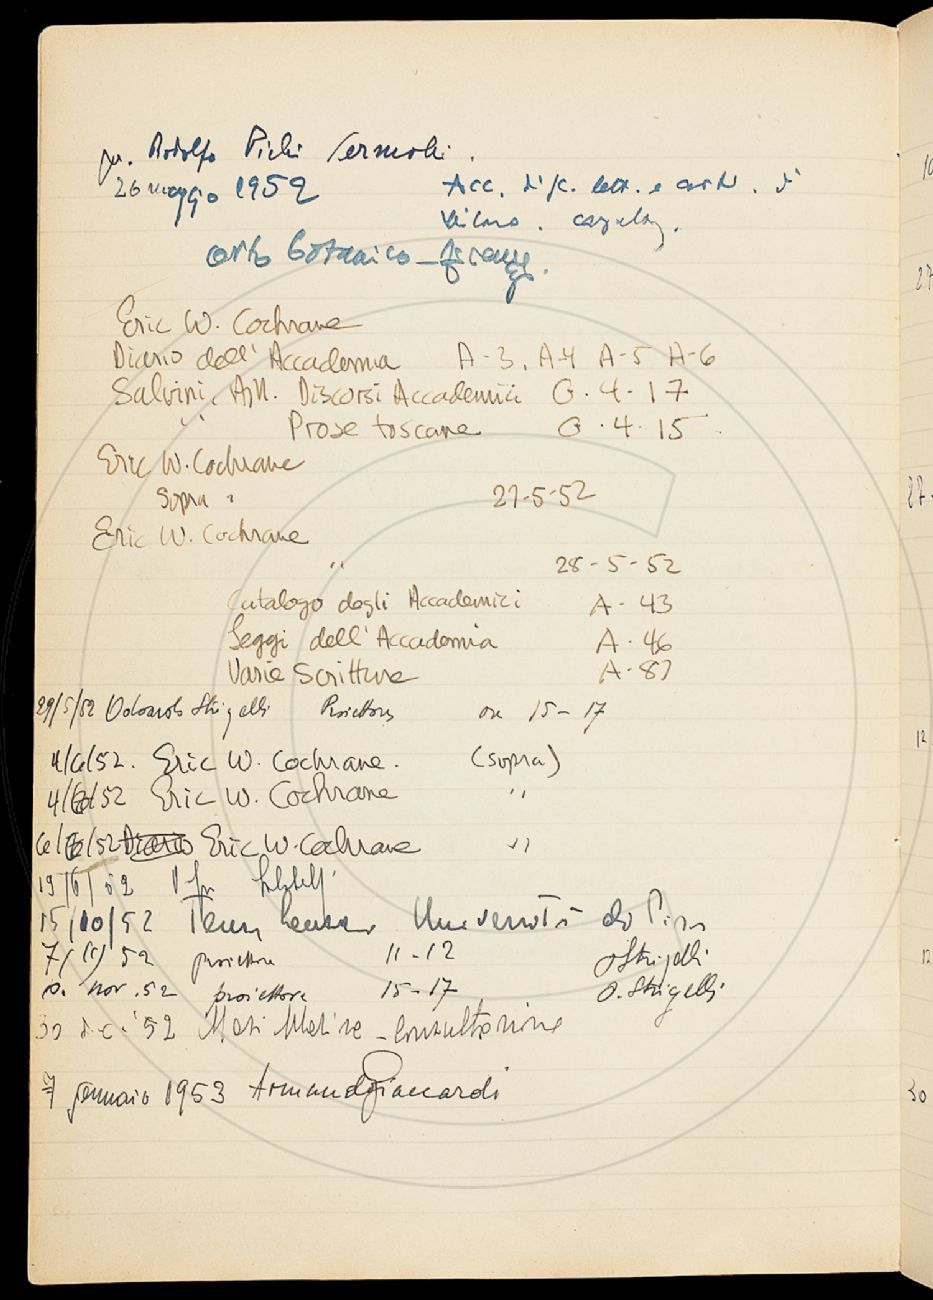 Rodolfo Pichi Sermolli.
26 maggio 1952
Acc. di sc. lett. e arti. di
Milano. catalog.
Orto botanico - Firenze.
Eric W. Cochrane
Diario dell'Accademia A-3, A4 A-5 A-6
Salvini, A.M. Discorsi Accademici G.4.17
" Prose toscane G.4.15
Eric W. Cochrane
Sopra " 27-5-52
Eric W. Cochrane
" 28-5-52
Catalogo degli Accademici A-43
Leggi dell'Accademia A.46
Varie Scritture A-87
29/5/52 Strigelli Proiettore ore 15-17
4/6/52. Eric W. Cochrane. (sopra)
4/6/52 Eric W. Cochrane "
6/6/52 Diario Eric W. Cochrane "
19/6/52
15/10/52 Università di Pisa
7/11/52 proiettore 11-12 O. Strigelli
nov. 52 proiettore 15-17 O. Strigelli
30 dic. '52 consultazione
7 gennaio 1953 Armando Giaccardi
10
27
27-
12
12
30